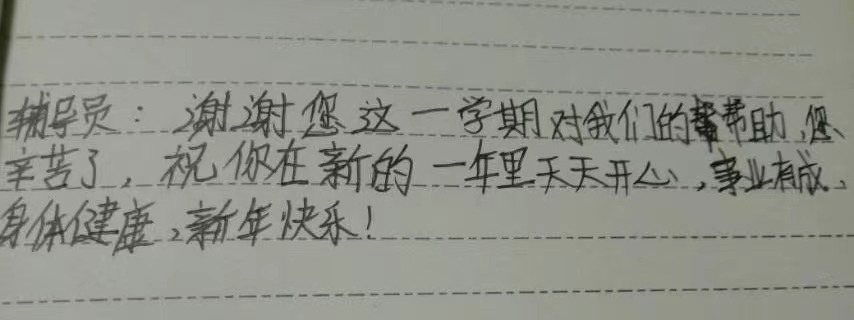 辅导员：谢谢您这一学期对我们的帮助，您
辛苦了，祝你在新的一年里天天开心，事业有成，
身体健康，新年快乐！